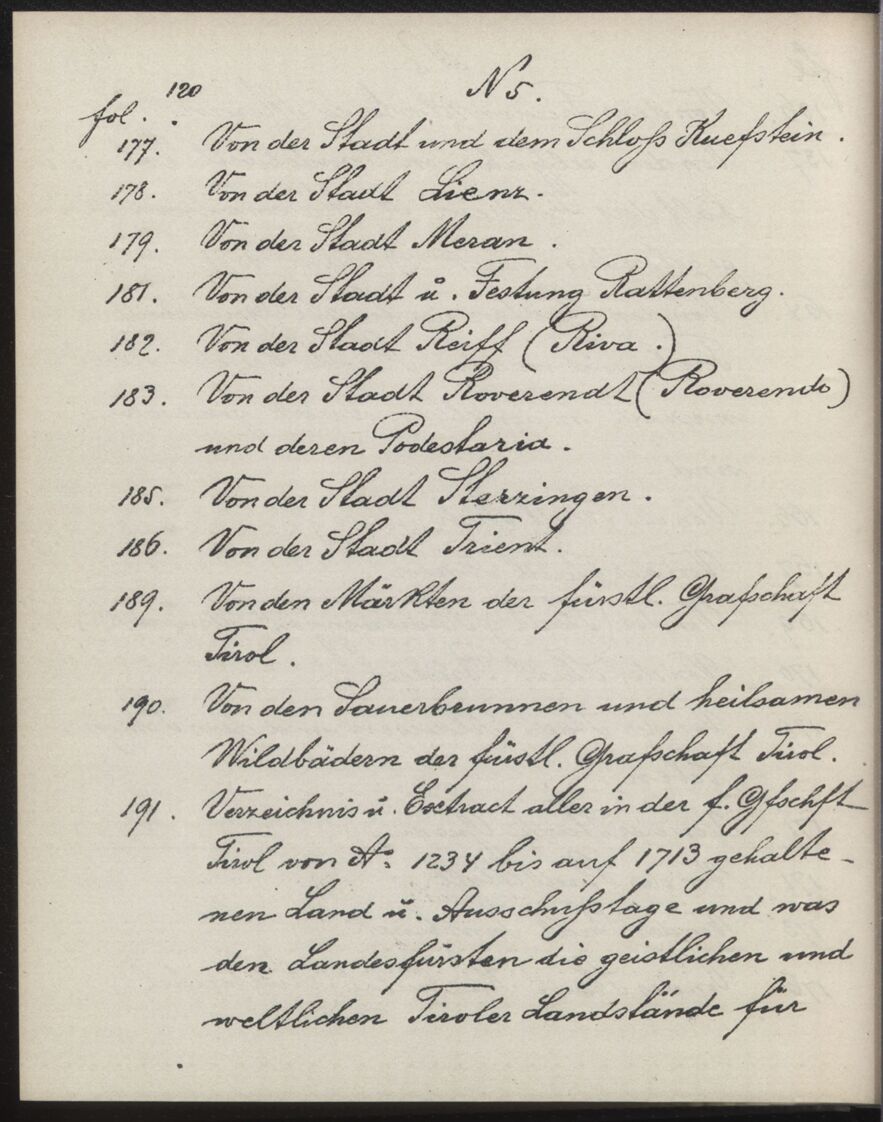 120 N 5.
fol.
177. Von der Stadt und dem Schloß Kuefstein.
178. Von der Stadt Lienz.
179. Von der Stadt Meran.
181. Von der Stadt u. Festung Rattenberg.
182. Von der Stadt Reiff (Riva.)
183. Von der Stadt Roverendt (Roverendo)
und deren Podestaria.
185. Von der Stadt Sterzingen.
186. Von der Stadt Trient.
189. Von den Märkten der fürstl. Grafschaft
Tirol.
190. Von den Sauerbrunnen und heilsamen
Wildbädern der füstl. Grafschaft Tirol.
191. Verzeichnis u. Extract aller in der f. Gfschft
Tirol von Aº. 1234 bis auf 1713 gehalte-
nen Land u. Ausschußtage und was
den Landesfürsten die geistlichen und
weltlichen Tiroler Landstände für